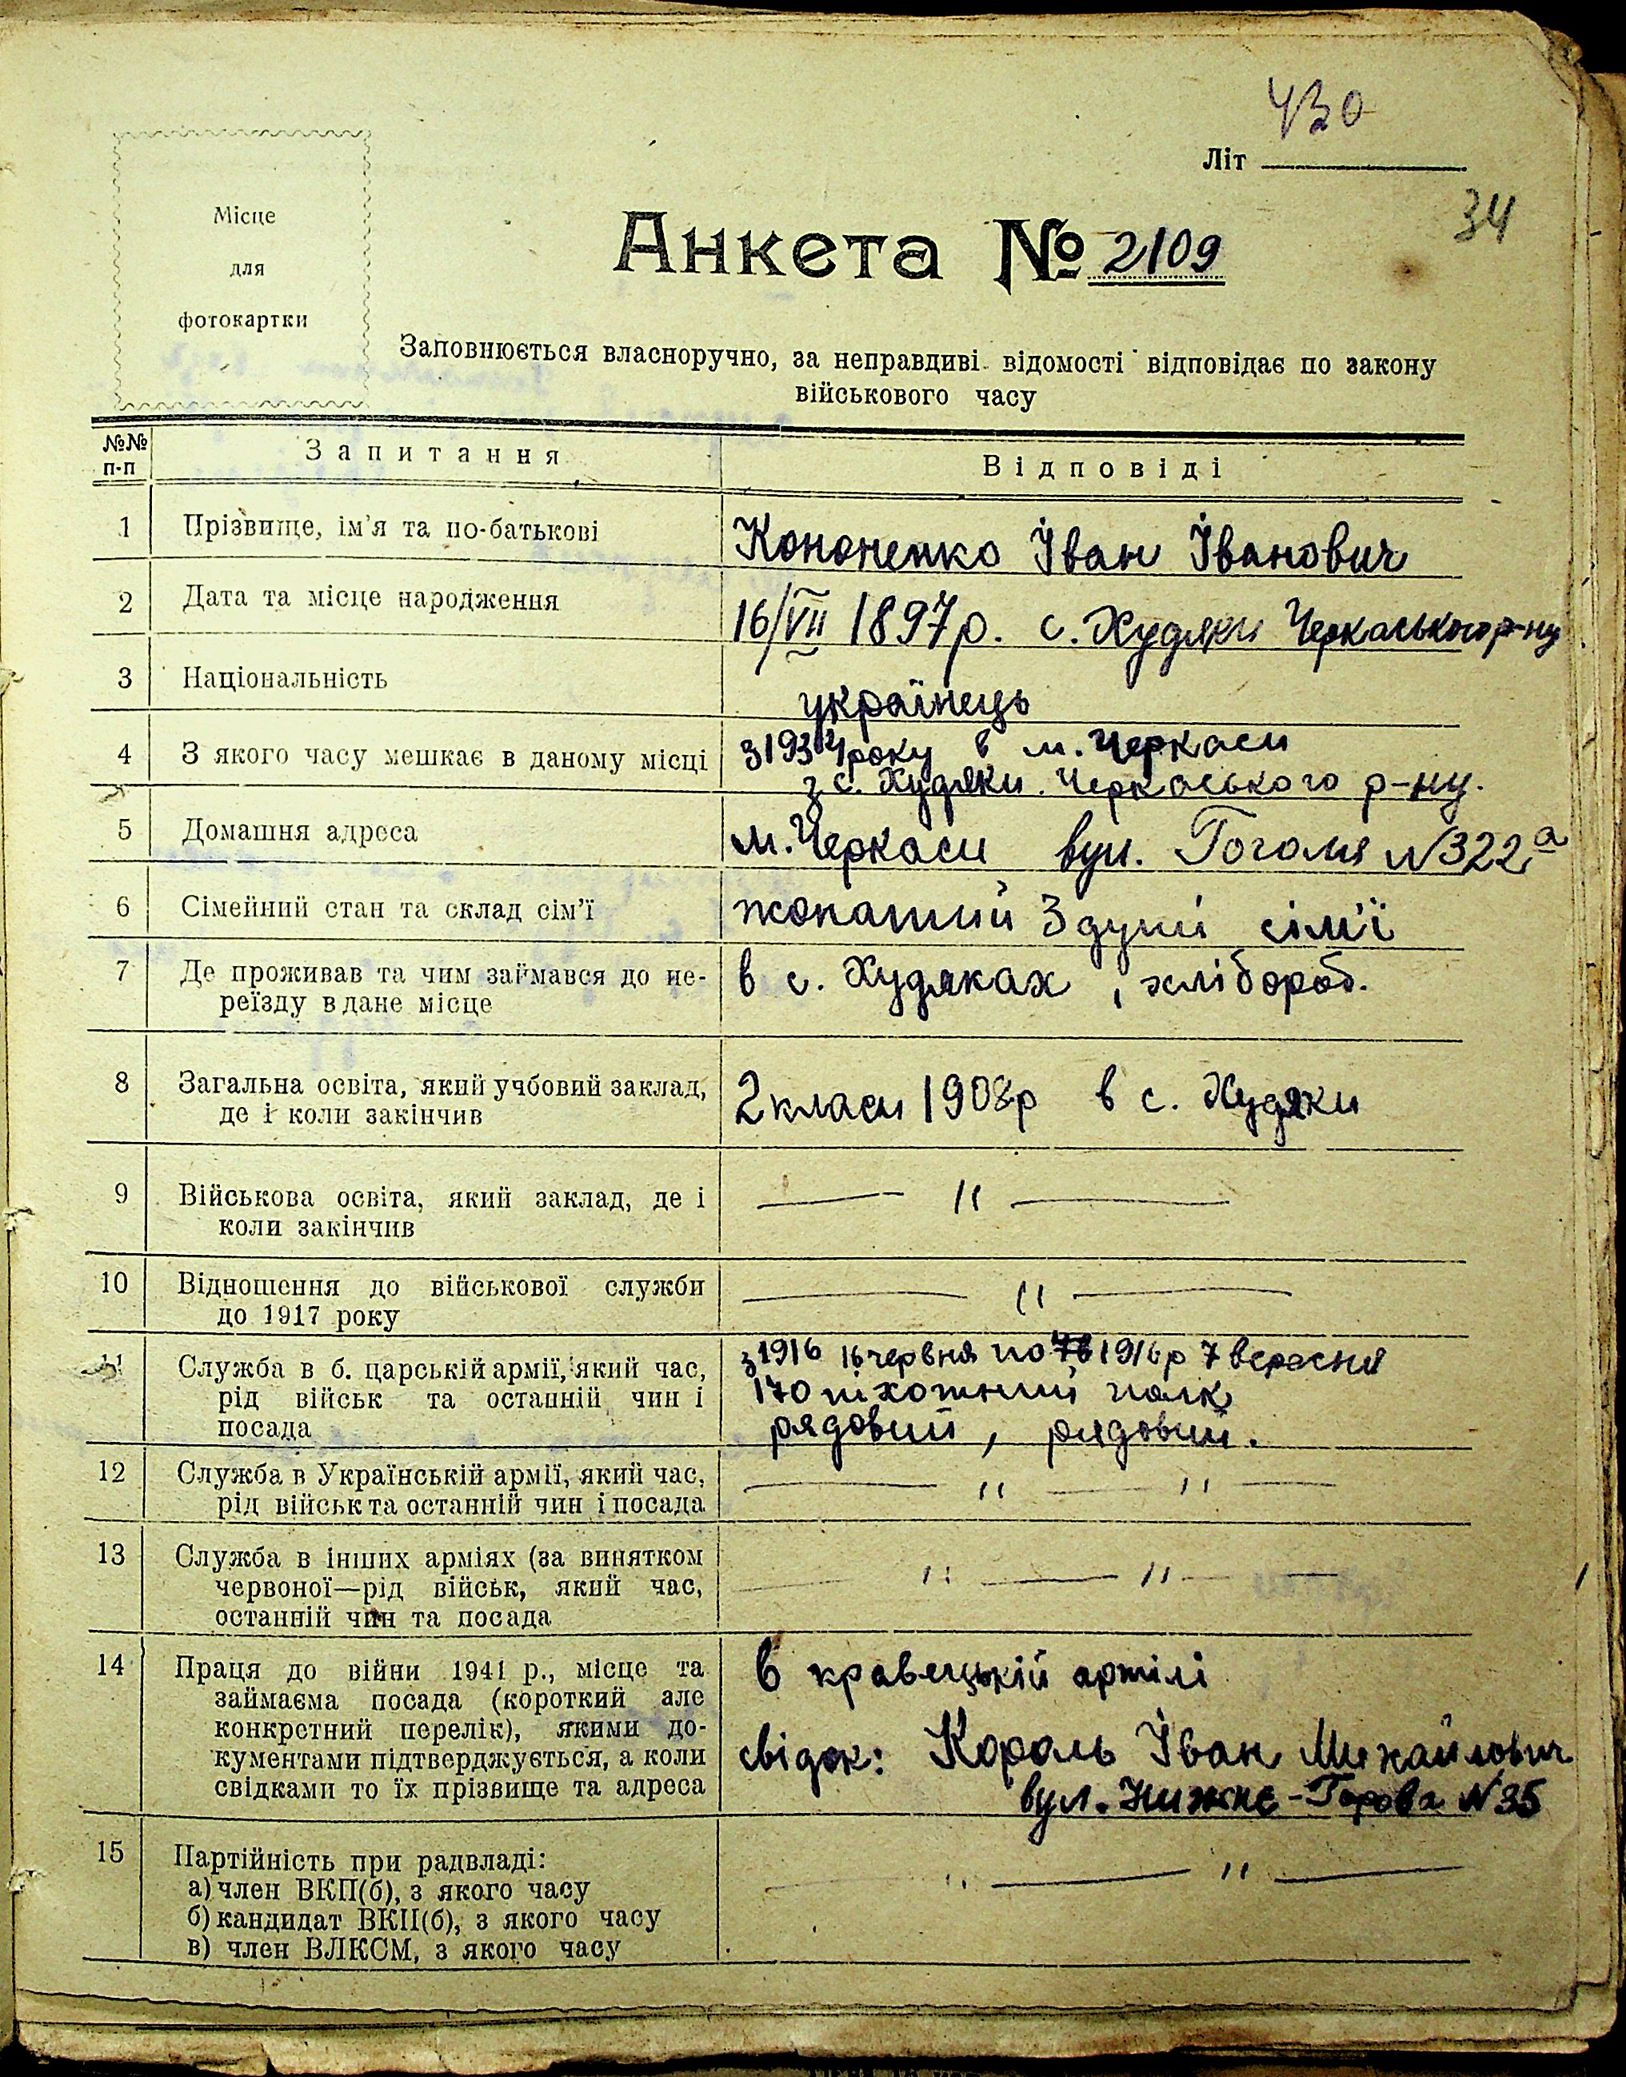 430
Літ
34
Місце
для
фотокартки
Анкета № 2109
Заповнюється власноручно, за неправдиві відомості відповідає по закону
військового часу
№№ п-п
Запитання
Відповіді
1
Прізвище, ім'я та по-батькові
Кононенко Іван Іванович
2
Дата та місце народження
16/VII 1897р. с. Худяки Черкаського р-ну
3
Національність
українець
4
З якого часу мешкає в даному місці
з 1934 року в м. Черкаси
з с. Худяки Черкаського р-ну.
5
Домашня адреса
м. Черкаси вул. Гоголя №322а
6
Сімейний стан та склад сім'ї
жонатий 3 душі сім'ї
7
Де проживав та чим займався до пе-
реїзду в дане місце
в с. Худяках, хлібороб.
8
Загальна освіта, який учбовий заклад,
де і коли закінчив
2 класи 1908р в с. Худяки
9
Військова освіта, який заклад, де і
коли закінчив
— " —
10
Відношення до військової служби
до 1917 року
— " —
11
Служба в б. царській армії, який час,
рід військ та останній чин і
посада
з 1916 16 червня по 1916р 7 вересня
170 піхотний полк
рядовий, рядовий.
12
Служба в Українській армії, який час,
рід військ та останній чин і посада
— " — " —
13
Служба в інших арміях (за винятком
червоної—рід військ, який час,
останній чин та посада
— " — " —
14
Праця до війни 1941 р., місце та
займаєма посада (короткий але
конкретний перелік), якими до-
кументами підтверджується, а коли
свідками то їх прізвище та адреса
в кравецькій артілі
свідок: Король Іван Михайлович
вул. Нижнє-Горова №35
15
Партійність при радвладі:
а) член ВКП(б), з якого часу
б) кандидат ВКП(б), з якого часу
в) член ВЛКСМ, з якого часу
— " — " —